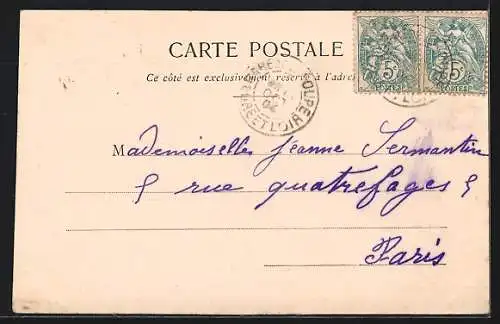 CARTE POSTALE
Ce côté est exclusivement réservé à l'adre
5c 5c
POSTES POSTES
EURE ET LOIR
Mademoiselles Jeanne Sermantin
5 rue quatrefages 5
Paris